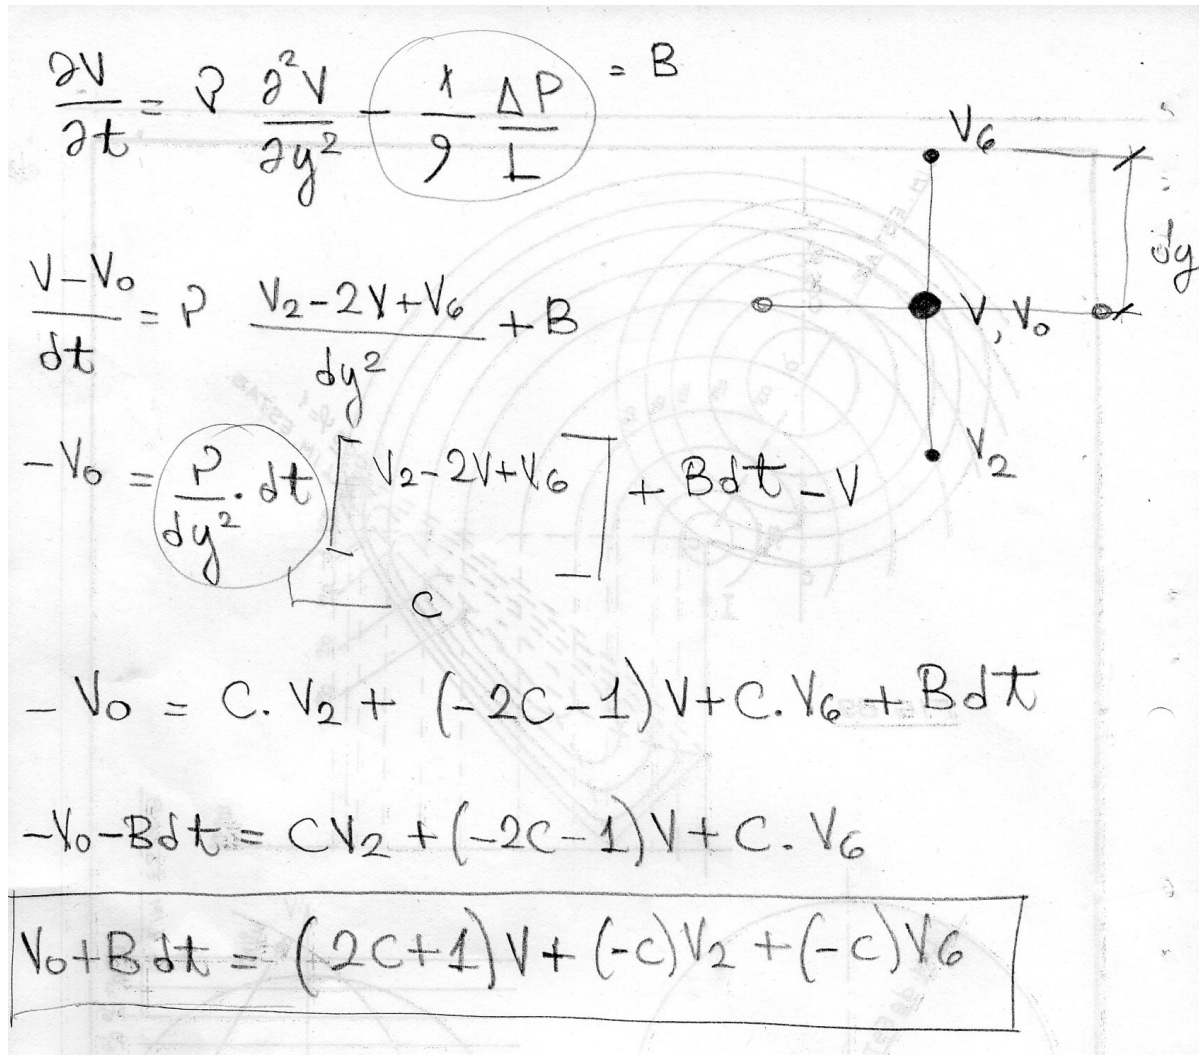 ∂V/∂t = ν ∂²V/∂y² - 1/ρ ΔP/L = B
V6
dy
V, V0
V2
V-V0/dt = ν V2-2V+V6/dy² + B
-V0 = ν/dy² . dt [V2-2V+V6] + Bdt - V
C
- V0 = C. V2 + (-2C-1) V + C. V6 + Bdt
-V0-Bdt = CV2 + (-2C-1) V + C. V6
V0+Bdt = (2C+1) V + (-C)V2 + (-C)V6